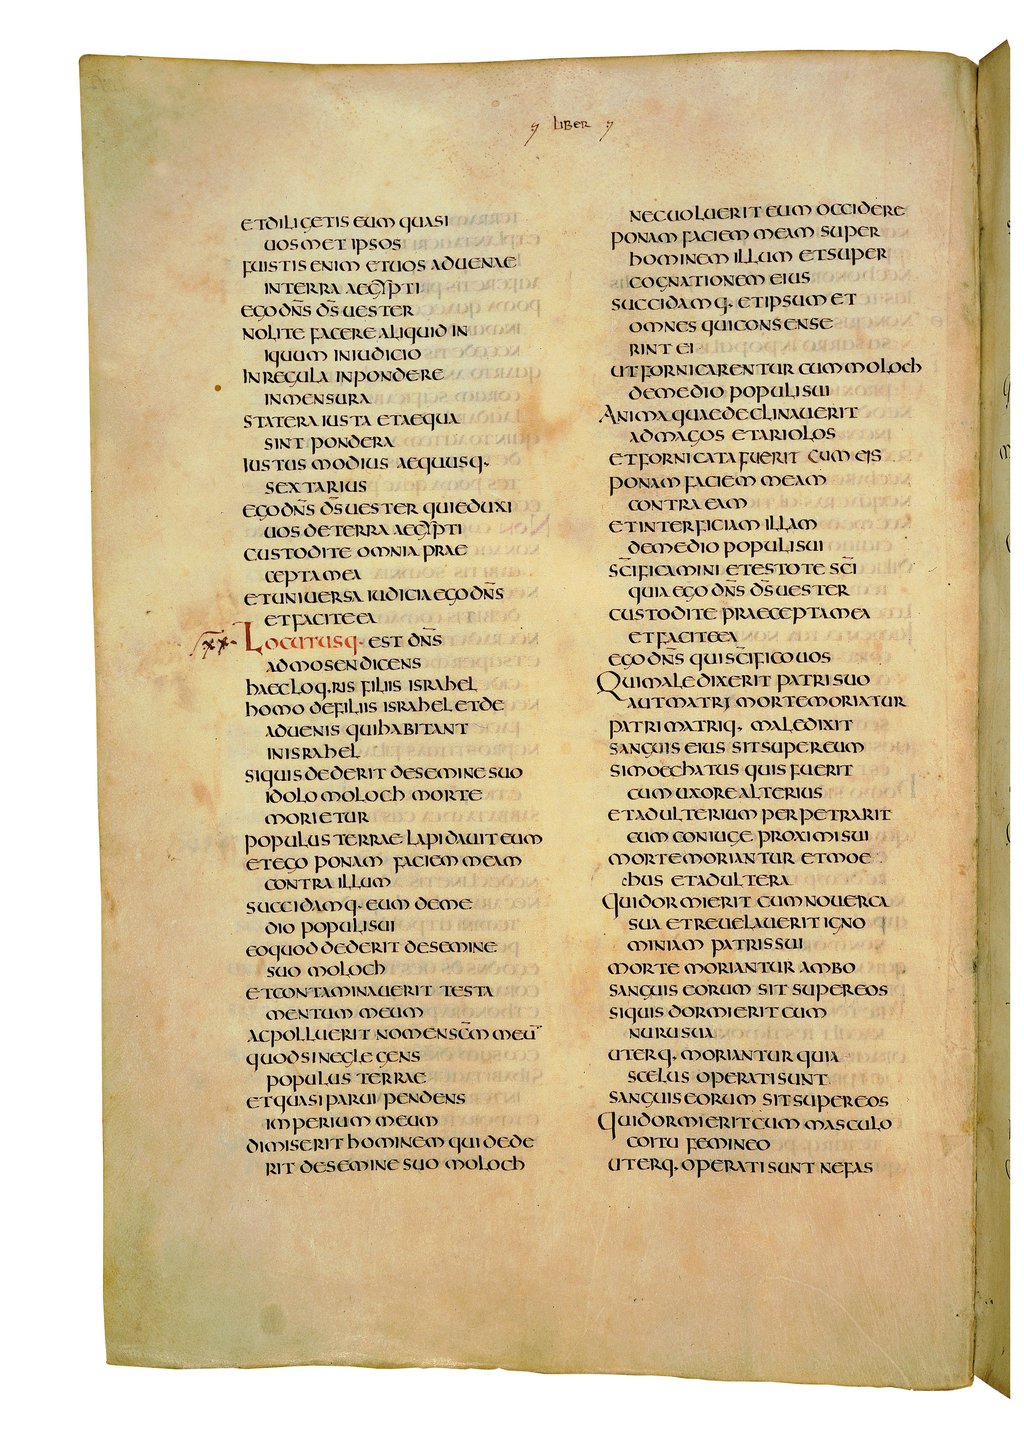 LIBER
ETDILIGETIS EUM QUASI
UOSMET IPSOS
FUISTIS ENIM ETUOS ADUENAE
INTERRA AEGYPTI
EGO DN̄S D̄S UESTER
NOLITE FACERE ALIQUID IN
IQUUM INIUDICIO
INREGULA INPONDERE
INMENSURA
STATERA IUSTA ETAEQUA
SINT PONDERA
IUSTUS MODIUS AEQUUSQ·
SEXTARIUS
EGO DN̄S D̄S UESTER QUIEDUXI
UOS DETERRA AEGYPTI
CUSTODITE OMNIA PRAE
CEPTA MEA
ETUNIUERSA IUDICIA EGO DN̄S
ETFACITE EA
XX· LOCUTUSQ· EST DN̄S
ADMOSEN DICENS
HAEC LOQ·RIS FILIIS ISRAHEL
HOMO DEFILIIS ISRAHEL ETDE
ADUENIS QUIHABITANT
INISRAHEL
SIQUIS DEDERIT DESEMINE SUO
IDOLO MOLOCH MORTE
MORIETUR
POPULUS TERRAE LAPIDAUIT EUM
ETEGO PONAM FACIEM MEAM
CONTRA ILLUM
SUCCIDAMQ· EUM DEME
DIO POPULI SUI
EOQUOD DEDERIT DESEMINE
SUO MOLOCH
ETCONTAMINAUERIT TESTA
MENTUM MEUM
ACPOLLUERIT NOMEN SC̄M MEŪ
QUOD SI NEGLEGENS
POPULUS TERRAE
ETQUASI PARUI PENDENS
IMPERIUM MEUM
DIMISERIT HOMINEM QUI DEDE
RIT DESEMINE SUO MOLOCH
NECUOLUERIT EUM OCCIDERE
PONAM FACIEM MEAM SUPER
HOMINEM ILLUM ETSUPER
COGNATIONEM EIUS
SUCCIDAMQ· ETIPSUM ET
OMNES QUICONSENSE
RINT EI
UTFORNICARENTUR CUM MOLOCH
DEMEDIO POPULI SUI
ANIMA QUAE DECLINAUERIT
ADMAGOS ETARIOLOS
ETFORNICATA FUERIT CUM EIS
PONAM FACIEM MEAM
CONTRA EAM
ETINTERFICIAM ILLAM
DEMEDIO POPULI SUI
SC̄IFICAMINI ETESTOTE SC̄I
QUIA EGO DN̄S D̄S UESTER
CUSTODITE PRAECEPTA MEA
ETFACITE EA
EGO DN̄S QUI SC̄IFICO UOS
QUI MALEDIXERIT PATRI SUO
AUT MATRI MORTE MORIATUR
PATRI MATRIQ· MALEDIXIT
SANGUIS EIUS SIT SUPER EUM
SIMOECHATUS QUIS FUERIT
CUM UXORE ALTERIUS
ETADULTERIUM PERPETRARIT
CUM CONIUGE PROXIMI SUI
MORTE MORIANTUR ETMOE
CHUS ETADULTERA
QUI DORMIERIT CUM NOUERCA
SUA ETREUELAUERIT IGNO
MINIAM PATRIS SUI
MORTE MORIANTUR AMBO
SANGUIS EORUM SIT SUPER EOS
SIQUIS DORMIERIT CUM
NURU SUA
UTERQ· MORIANTUR QUIA
SCELUS OPERATI SUNT
SANGUIS EORUM SIT SUPER EOS
QUI DORMIERIT CUM MASCULO
COITU FEMINEO
UTERQ· OPERATI SUNT NEFAS